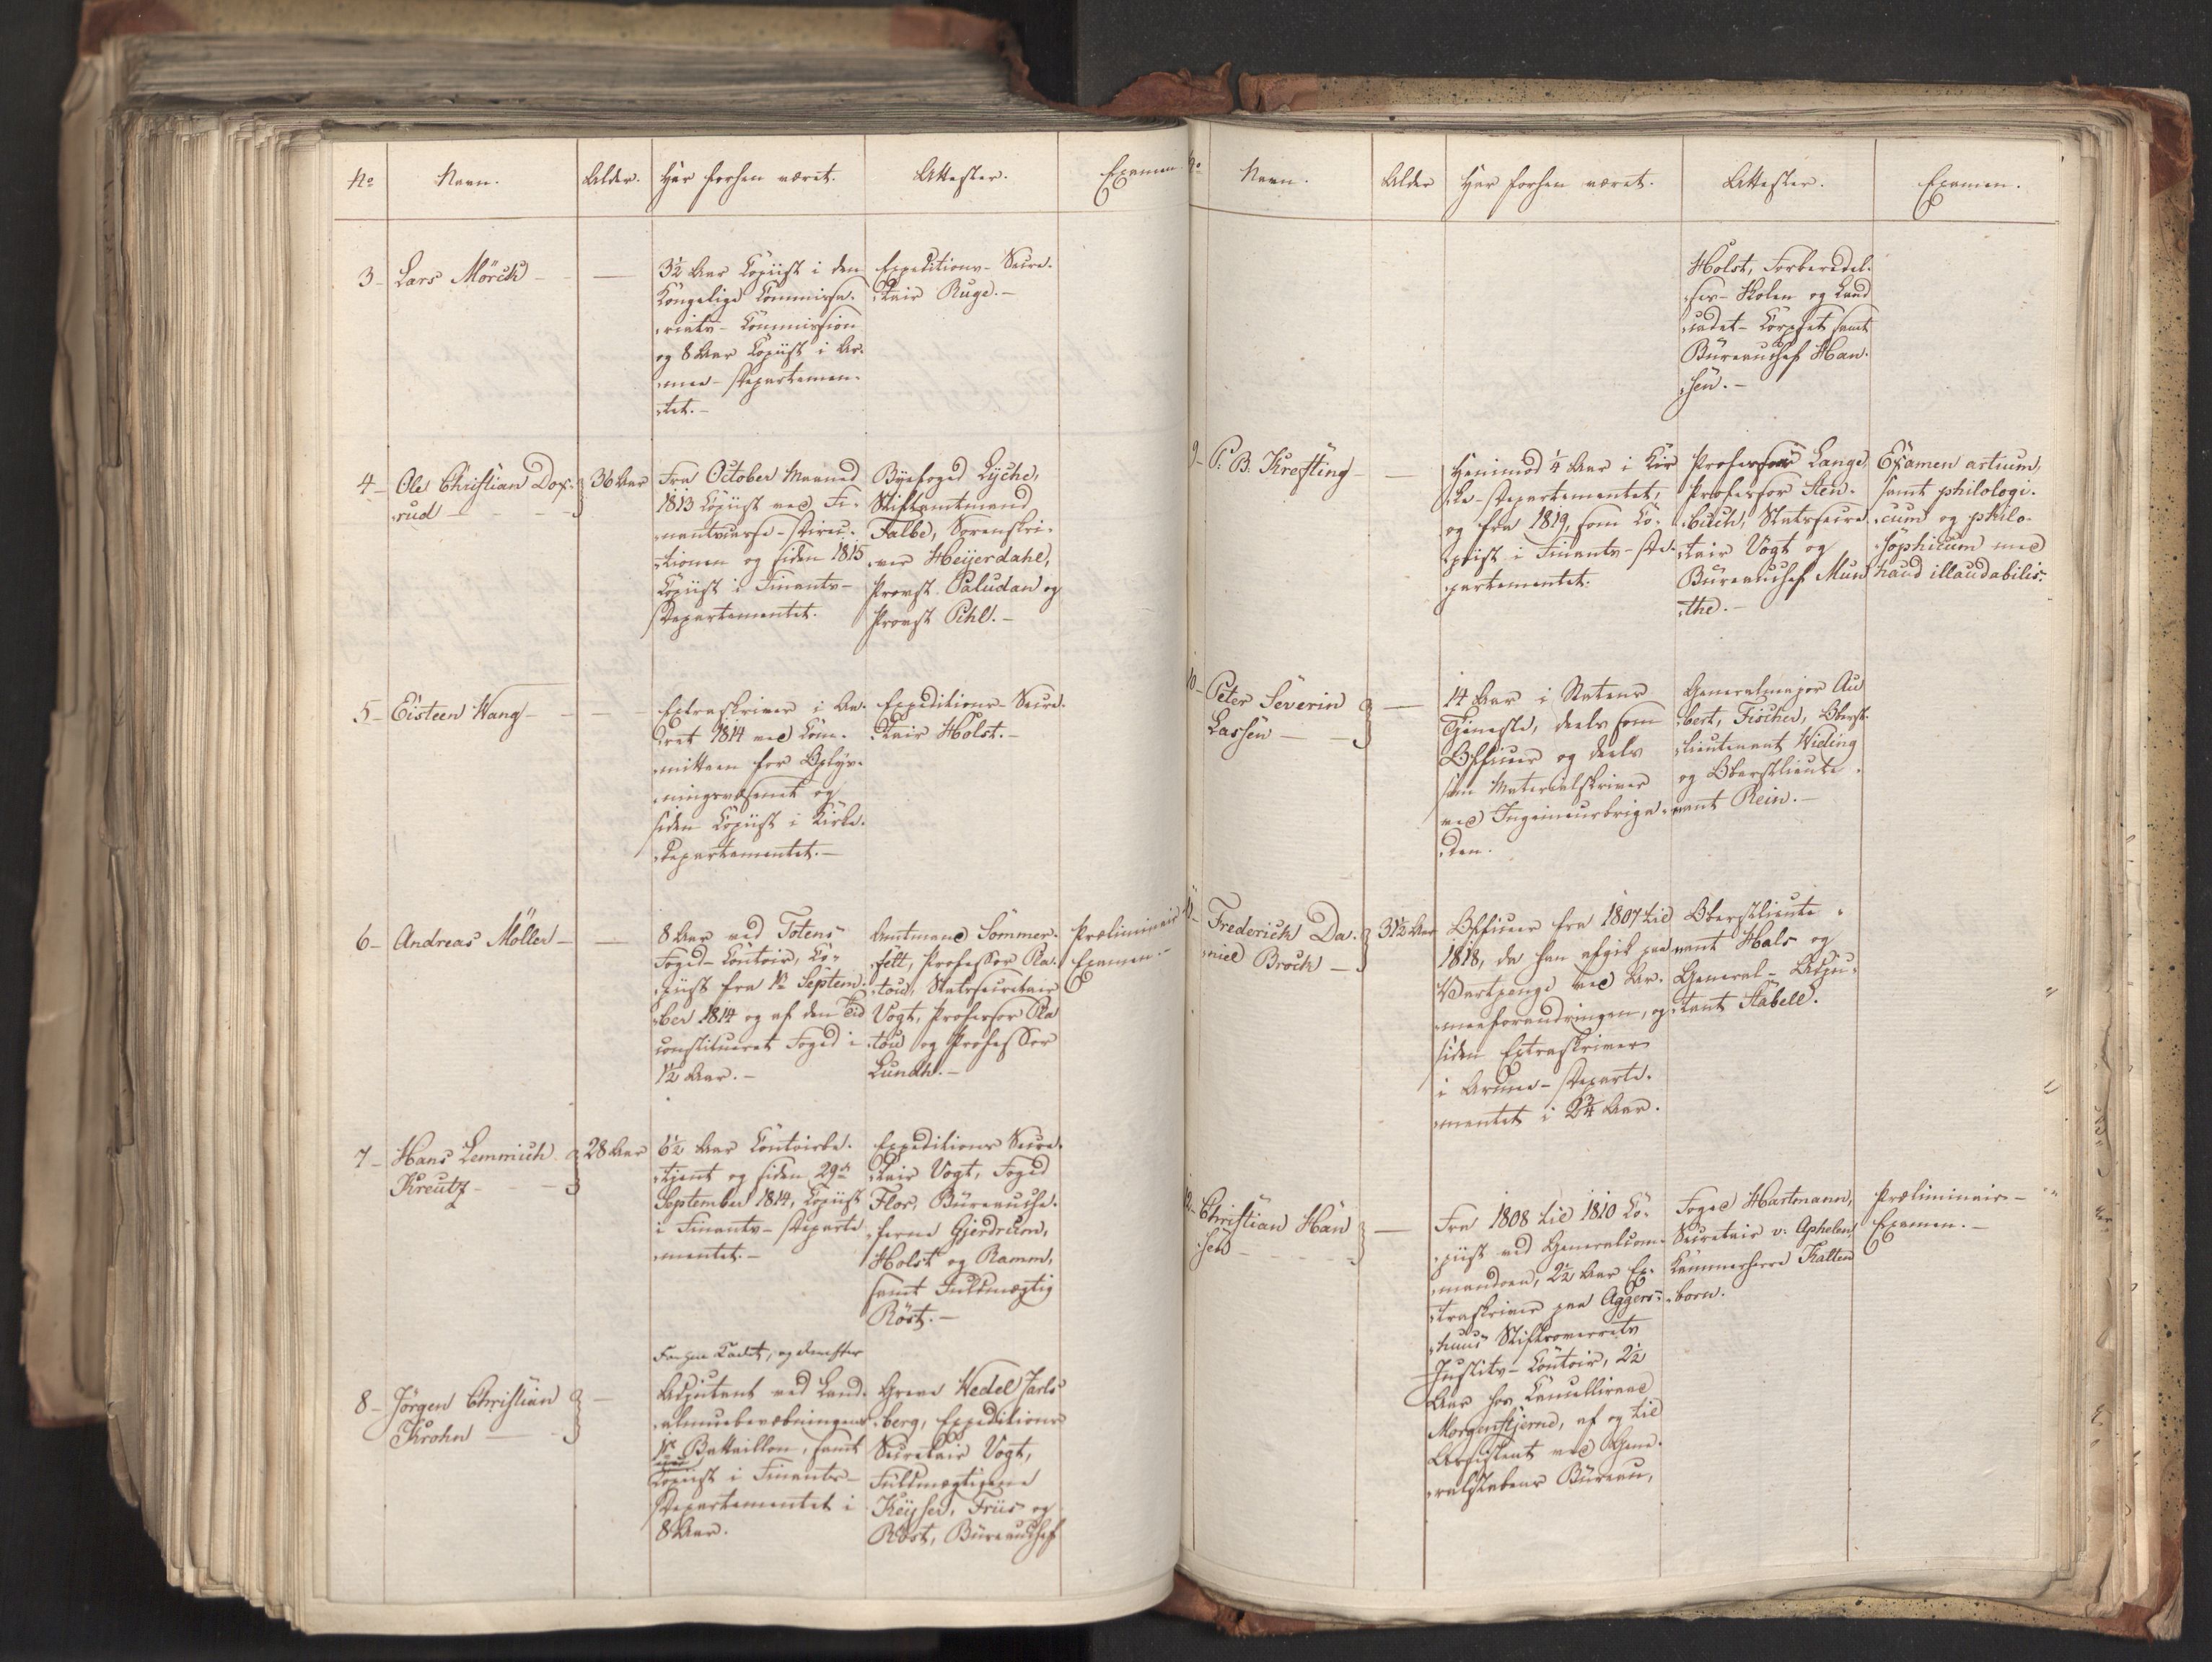 No Navn. Alder. Har forhen været. Attester. Examen.
3 - Lars Mörch - - —
3½ Aar Copiist i den
Kongelige Commissa-
riats-Commission
og 8 Aar Copiist i Ar-
mee-Departemen-
tet. -
Expeditions-Secre-
tair Ruge. -
4 - Ole Christian Dop-
rud - - -
36 Aar
Fra October Maaned
1813 Copiist ved Fi-
nantscasse-Direc-
tionen og siden 1815
Copiist i Finants-
Departementet.
Byefoged Lyche,
Stiftamtmand
Falbe, Sorenskri-
ver Heijerdahl,
Provst Paludan og
Provst Pihl. -
5 - Eisteen Wang - - —
Extraskriver i Aa-
ret 1814 ved Com-
mitteen for Oplys-
ningsvæsenet og
siden Copiist i Kirke-
Departementet. -
Expeditions-Secre-
tair Holst. -
6 - Andreas Möller - —
8 Aar ved Totens
Foged-Contoir, Co-
piist fra 1ste Septem-
ber 1814 og af den Tid
constitueret Foged i
1½ Aar. -
Amtmand Sommer-
felt, Professor Pla-
tou, Statssecretair
Vogt, Professor Pla
tou og Professor
Lundh. -
Præliminair
Examen. -
7 - Hans Lemmich
Kreutz - -
28 Aar
6½ Aar Contoirbe-
tjent og siden 29de
September 1814, Copiist
i Finants-Departe
mentet. -
Expeditions Secre-
tair Vogt, Foged
Flor, Büreauche-
ferne Gjerdrum,
Holst og Ramm,
samt Fuldmægtig
Röst. -
8 - Jörgen Christian
Krohn —
—
Forhen Cadet, og derefter
Adjutant ved Land-
almuebevæbningens
1ste Battaillon, samt
Copiist i Finants-
Departementet i
8 Aar.
Greve Wedel Jarls
berg, Expeditions
Secretair Vogt,
Fuldmægtigene
Keyser, Friis og
Röst, Büreauchef
No Navn. Alder Har forhen været. Attester. Examen.
Holst, Forberedel-
ses-Skolen og Land
cadet-Corpset samt
Büreauchef Han-
sen. -
9 - P. B. Krefting - —
Henimod ¼ Aar i Kir
ke-Departementet,
og fra 1819, som Co-
piist i Finants-De-
partementet.
Professor Lange,
Professor Sten-
buch, Statssecre-
tair Vogt og
Büreauchef Mun
the. -
Examen artium,
samt philologi-
cum og philo-
sophicum med
haud illaudabilis.
10 - Peter Severin
Lassen — -
—
14 Aar i Statens
Tjeneste, deels som
Officier og deels
som Materialskriver
ved Ingenieurbriga-
den.
Generalmajor Au
bert, Fischer, Oberst-
lieutenant Wieling
og Oberstlieute-
nant Rein. -
11 - Frederich Da-
niel Broch -
31½ Aar
Officier fra 1807 til
1818, da han afgik paa
Vartpenge ved Ar-
meeforandringen, og
siden Extraskriver
i Armee-Departe-
mentet i 2¾ Aar.
Oberstlieute-
nant Hals og
General-Adju-
tant Stabell.
12 - Christian Han
sen - -
—
Fra 1808 til 1810 Co-
piist ved Generalcom-
mandoen, 2½ Aar Ex-
traskriver paa Aggers-
huus Stiftsoverrets
Justits-Contoir, 2½
Aar hos Cancelliraad
Morgenstjerne, af og til
Assistent ved Gene-
ralstabens Büreau,
Foged Hartmann,
Secretair v: Aphelen,
Kammerherre Kalten
born.
Præliminair-
Examen. -